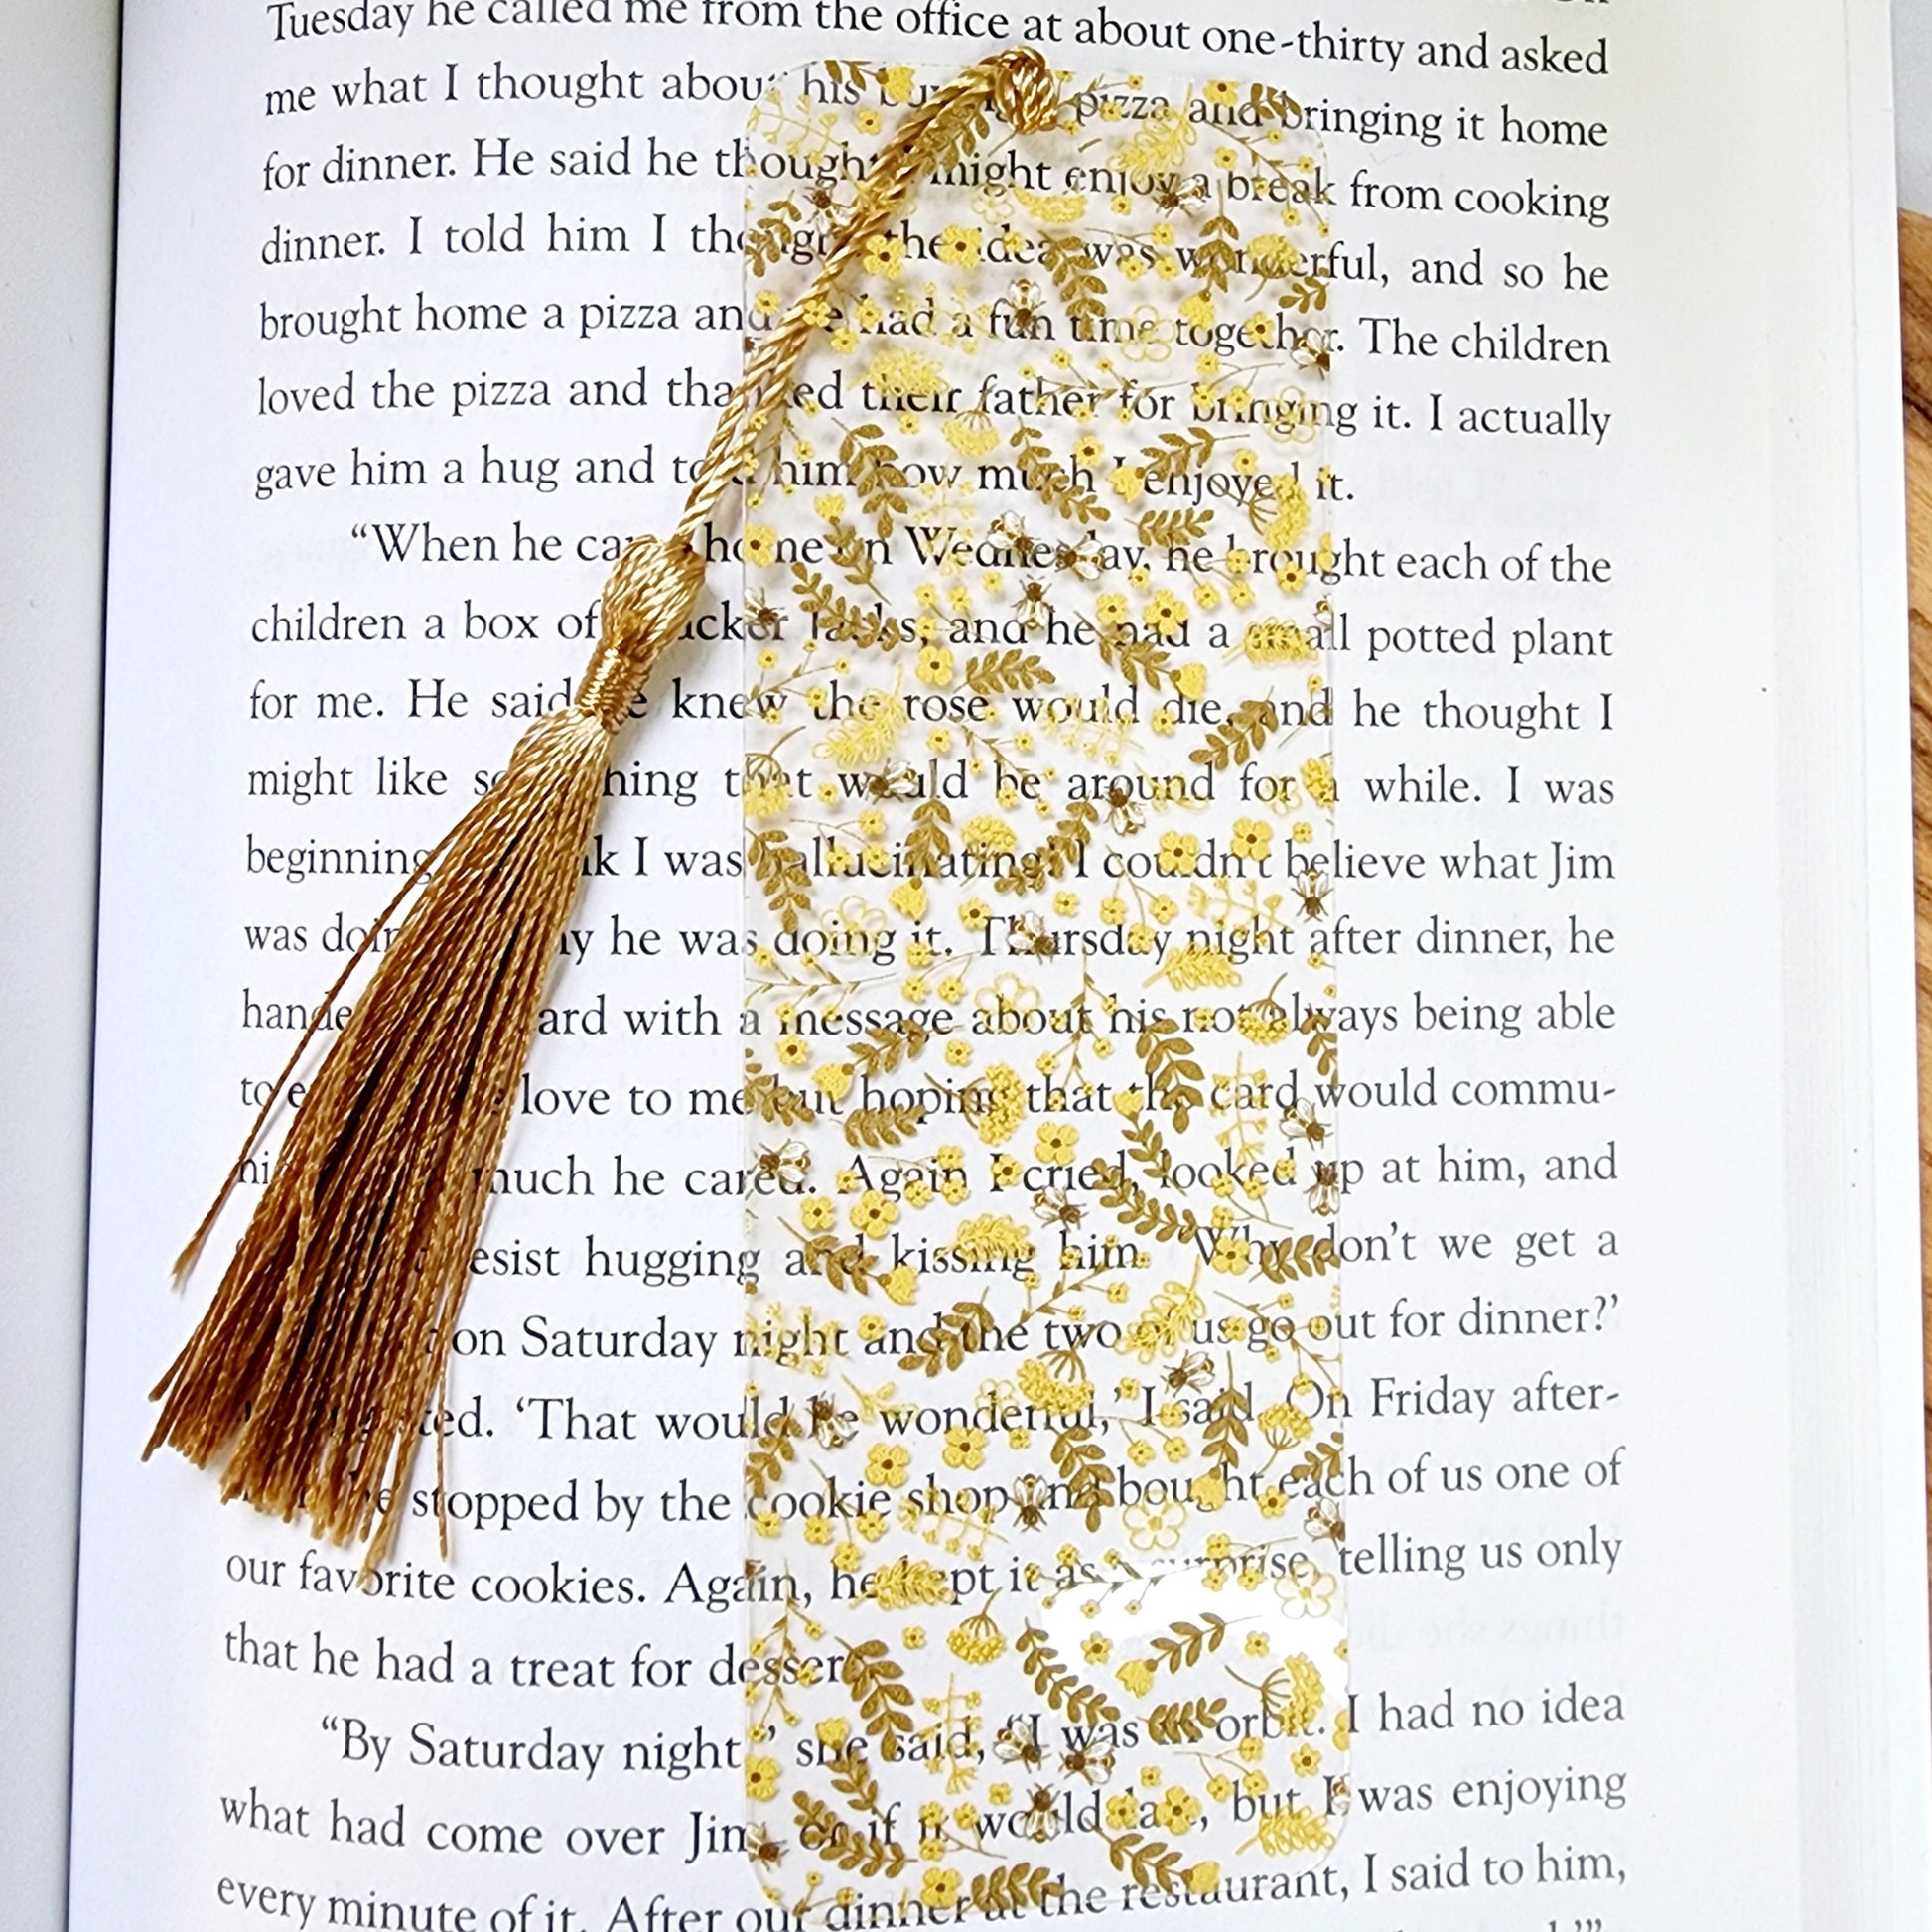 Tuesday he called me from the office at about one-thirty and asked
me what I thought about his pizza and bringing it home
for dinner. He said he thought might enjoy a break from cooking
dinner. I told him I thought the idea was wonderful, and so he
brought home a pizza and we had a fun time together. The children
loved the pizza and thanked their father for bringing it. I actually
gave him a hug and told him how much I enjoyed it.
“When he came home on Wednesday, he brought each of the
children a box of Cracker Jacks, and he had a small potted plant
for me. He said he knew the rose would die, and he thought I
might like something that would be around for a while. I was
beginning think I was hallucinating! I couldn’t believe what Jim
was doing why he was doing it. Thursday night after dinner, he
handed card with a message about his not always being able
to love to me but hoping that the card would commu-
much he cared. Again I cried, looked up at him, and
resist hugging and kissing him. ‘Why don’t we get a
on Saturday night and the two of us go out for dinner?’
‘That would be wonderful,’ I said. On Friday after-
he stopped by the cookie shop and bought each of us one of
our favorite cookies. Again, he kept it as a surprise, telling us only
that he had a treat for dessert.
“By Saturday night,” she said, “I was in orbit. I had no idea
what had come over Jim, or if it would last, but I was enjoying
every minute of it. After our dinner at the restaurant, I said to him,